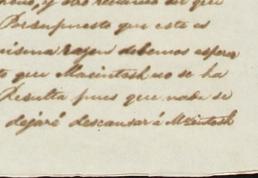 y otro reclamo del que
Por supuesto que este es
misma razon debemos esperar
to que Macintosh no se ha
Resulta pues que nada se
dejaré descansar á Mcintosh